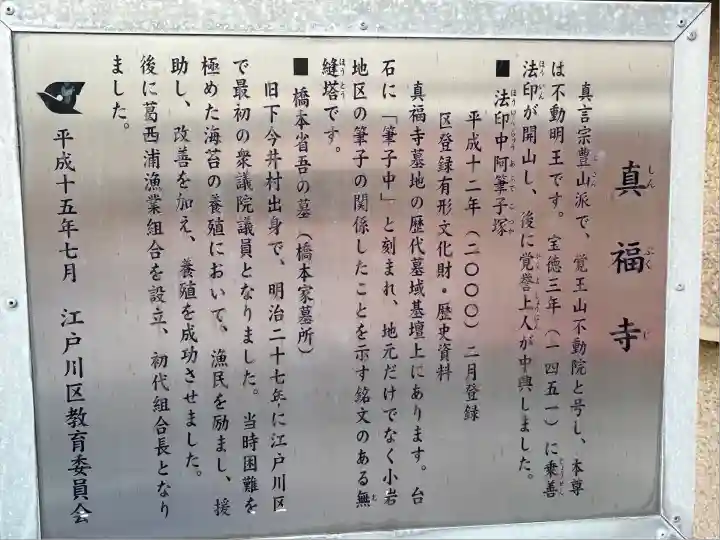 真福寺
真言宗豊山派で、覚王山不動院と号し、本尊
は不動明王です。宝徳三年（一四五一）に乗善
法印が開山し、後に覚誉上人が中興しました。
■ 法印中阿筆子塚
平成十二年（二〇〇〇）二月登録
区登録有形文化財・歴史資料
真福寺墓地の歴代墓域基壇上にあります。台
石に「筆子中」と刻まれ、地元だけでなく小岩
地区の筆子の関係したことを示す銘文のある無
縫塔です。
■ 橋本省吾の墓（橋本家墓所）
旧下今井村出身で、明治二十七年に江戸川区
で最初の衆議院議員となりました。当時困難を
極めた海苔の養殖において、漁民を励まし、援
助し、改善を加え、養殖を成功させました。
後に葛西浦漁業組合を設立、初代組合長となり
ました。
平成十五年七月 江戸川区教育委員会